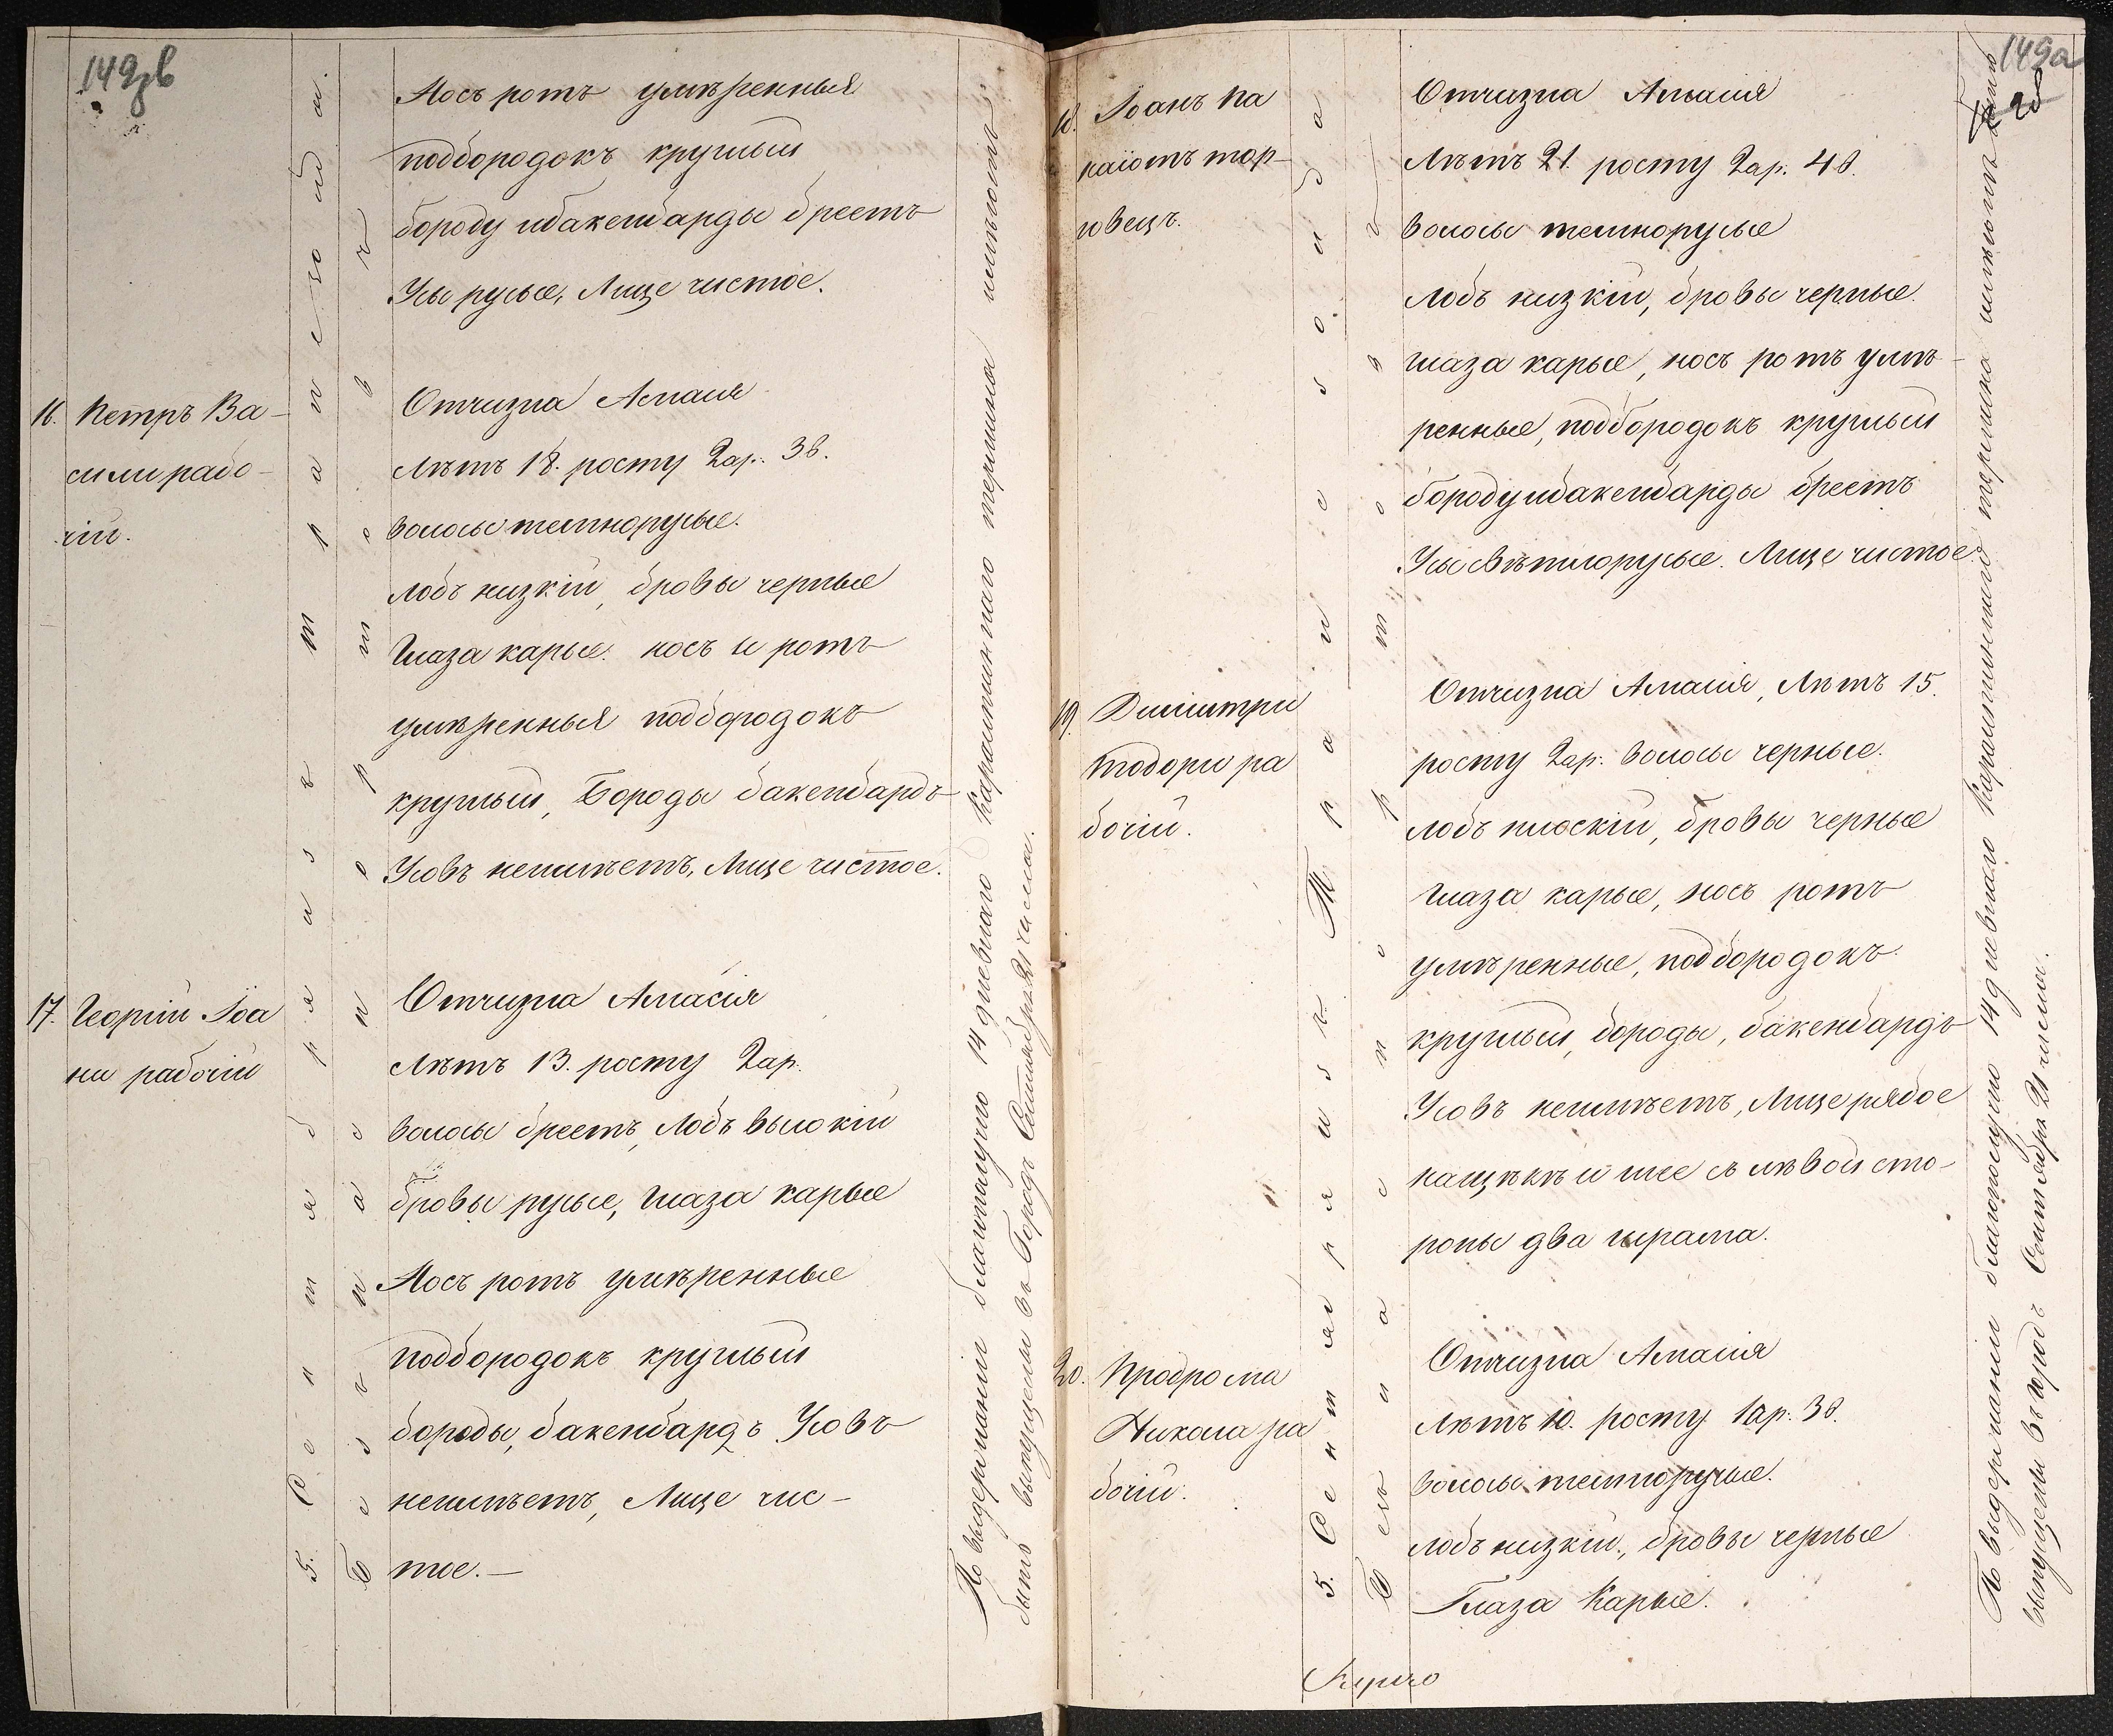 149зв
Носъ ротъ умѣренныя
подбородокъ круглый
бороду ибакенбарды бреетъ
Усы русые, Лице чистое.
16. Петръ Ва-
сили рабо-
чій.
Отчизна Амасия
Лѣтъ 18. росту 2 ар. 3 в.
волосы темнорусые.
лобъ низкій, бровы черные
Глаза карые. носъ и ротъ
умѣренныя подбородокъ
круглый, Бороды бакенбардъ
Усовъ неимѣетъ, Лице чистое.
17. Георгій Іоа
ни рабочій
Отчизна Амасія
Лѣтъ 13. росту 2 ар.
волосы бреетъ, Лобъ высокій
бровы русые, глаза карые
Носъ ротъ умѣренные
подбородокъ круглый
бороды, бакенбардъ Усовъ
неимѣетъ, Лице чис-
тое.-
5. Сентября изъ Трапезонда.
Безъ паспортовъ
По выдержаніи благополучно 14 дневнаго Карантиннаго термина имѣютъ
быть выпущены въ Городъ Сентября 21 числа.
149а
18. Іоанъ Па
наіотъ тор-
говецъ.
Отчизна Амасия
Лѣтъ 21. росту 2 ар. 4 в.
волосы темнорусые
лобъ низкій, бровы черные.
глаза карые, носъ ротъ умѣ-
ренные, подбородокъ круглый
бороду ибакенбарды бреетъ
Усы свѣтлорусые. Лице чистое.
19. Димитри
Тодори ра
бочій.
Отчизна Амасия, Лѣтъ 15.
росту 2 ар. волосы черные.
лобъ плоскій, бровы черные
глаза карые, носъ ротъ
умѣренные, подбородокъ
круглый, бороды, бакенбардъ
Усовъ неимѣетъ, Лице рябое
нащекѣ и шее съ лѣвой сто-
роны два шрама.
20. Продрома
Никола ра
бочій.
Отчизна Амасия
Лѣтъ 10. росту 1 ар. 3 в.
волосы темнорусые.
лобъ низкій, бровы черные
Глаза Карые.
5. Сентября изъ Трапезонда
Безъ паспортовъ
По выдержаніи благополучно 14 дневнаго Карантиннаго термина имѣютъ быть
выпущены въ городъ Сентября 21 числа.